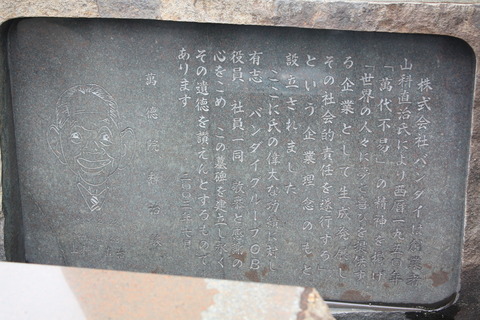 株式会社バンダイは創業者
山科直治氏により西暦一九五〇年
「萬代不易」の精神を掲げ
「世界の人々に夢と
る企業として生成発展し
その社会的責任を遂行する
という企業理念のもと
設立されました
ここに氏の偉大な功績に対し
有志 バンダイグループOB
役員、社員一同 敬慕と感謝の
心をこめ この墓碑を建立し永く
その遺徳を讃えんとするもので
あります
二〇〇三年
萬徳院